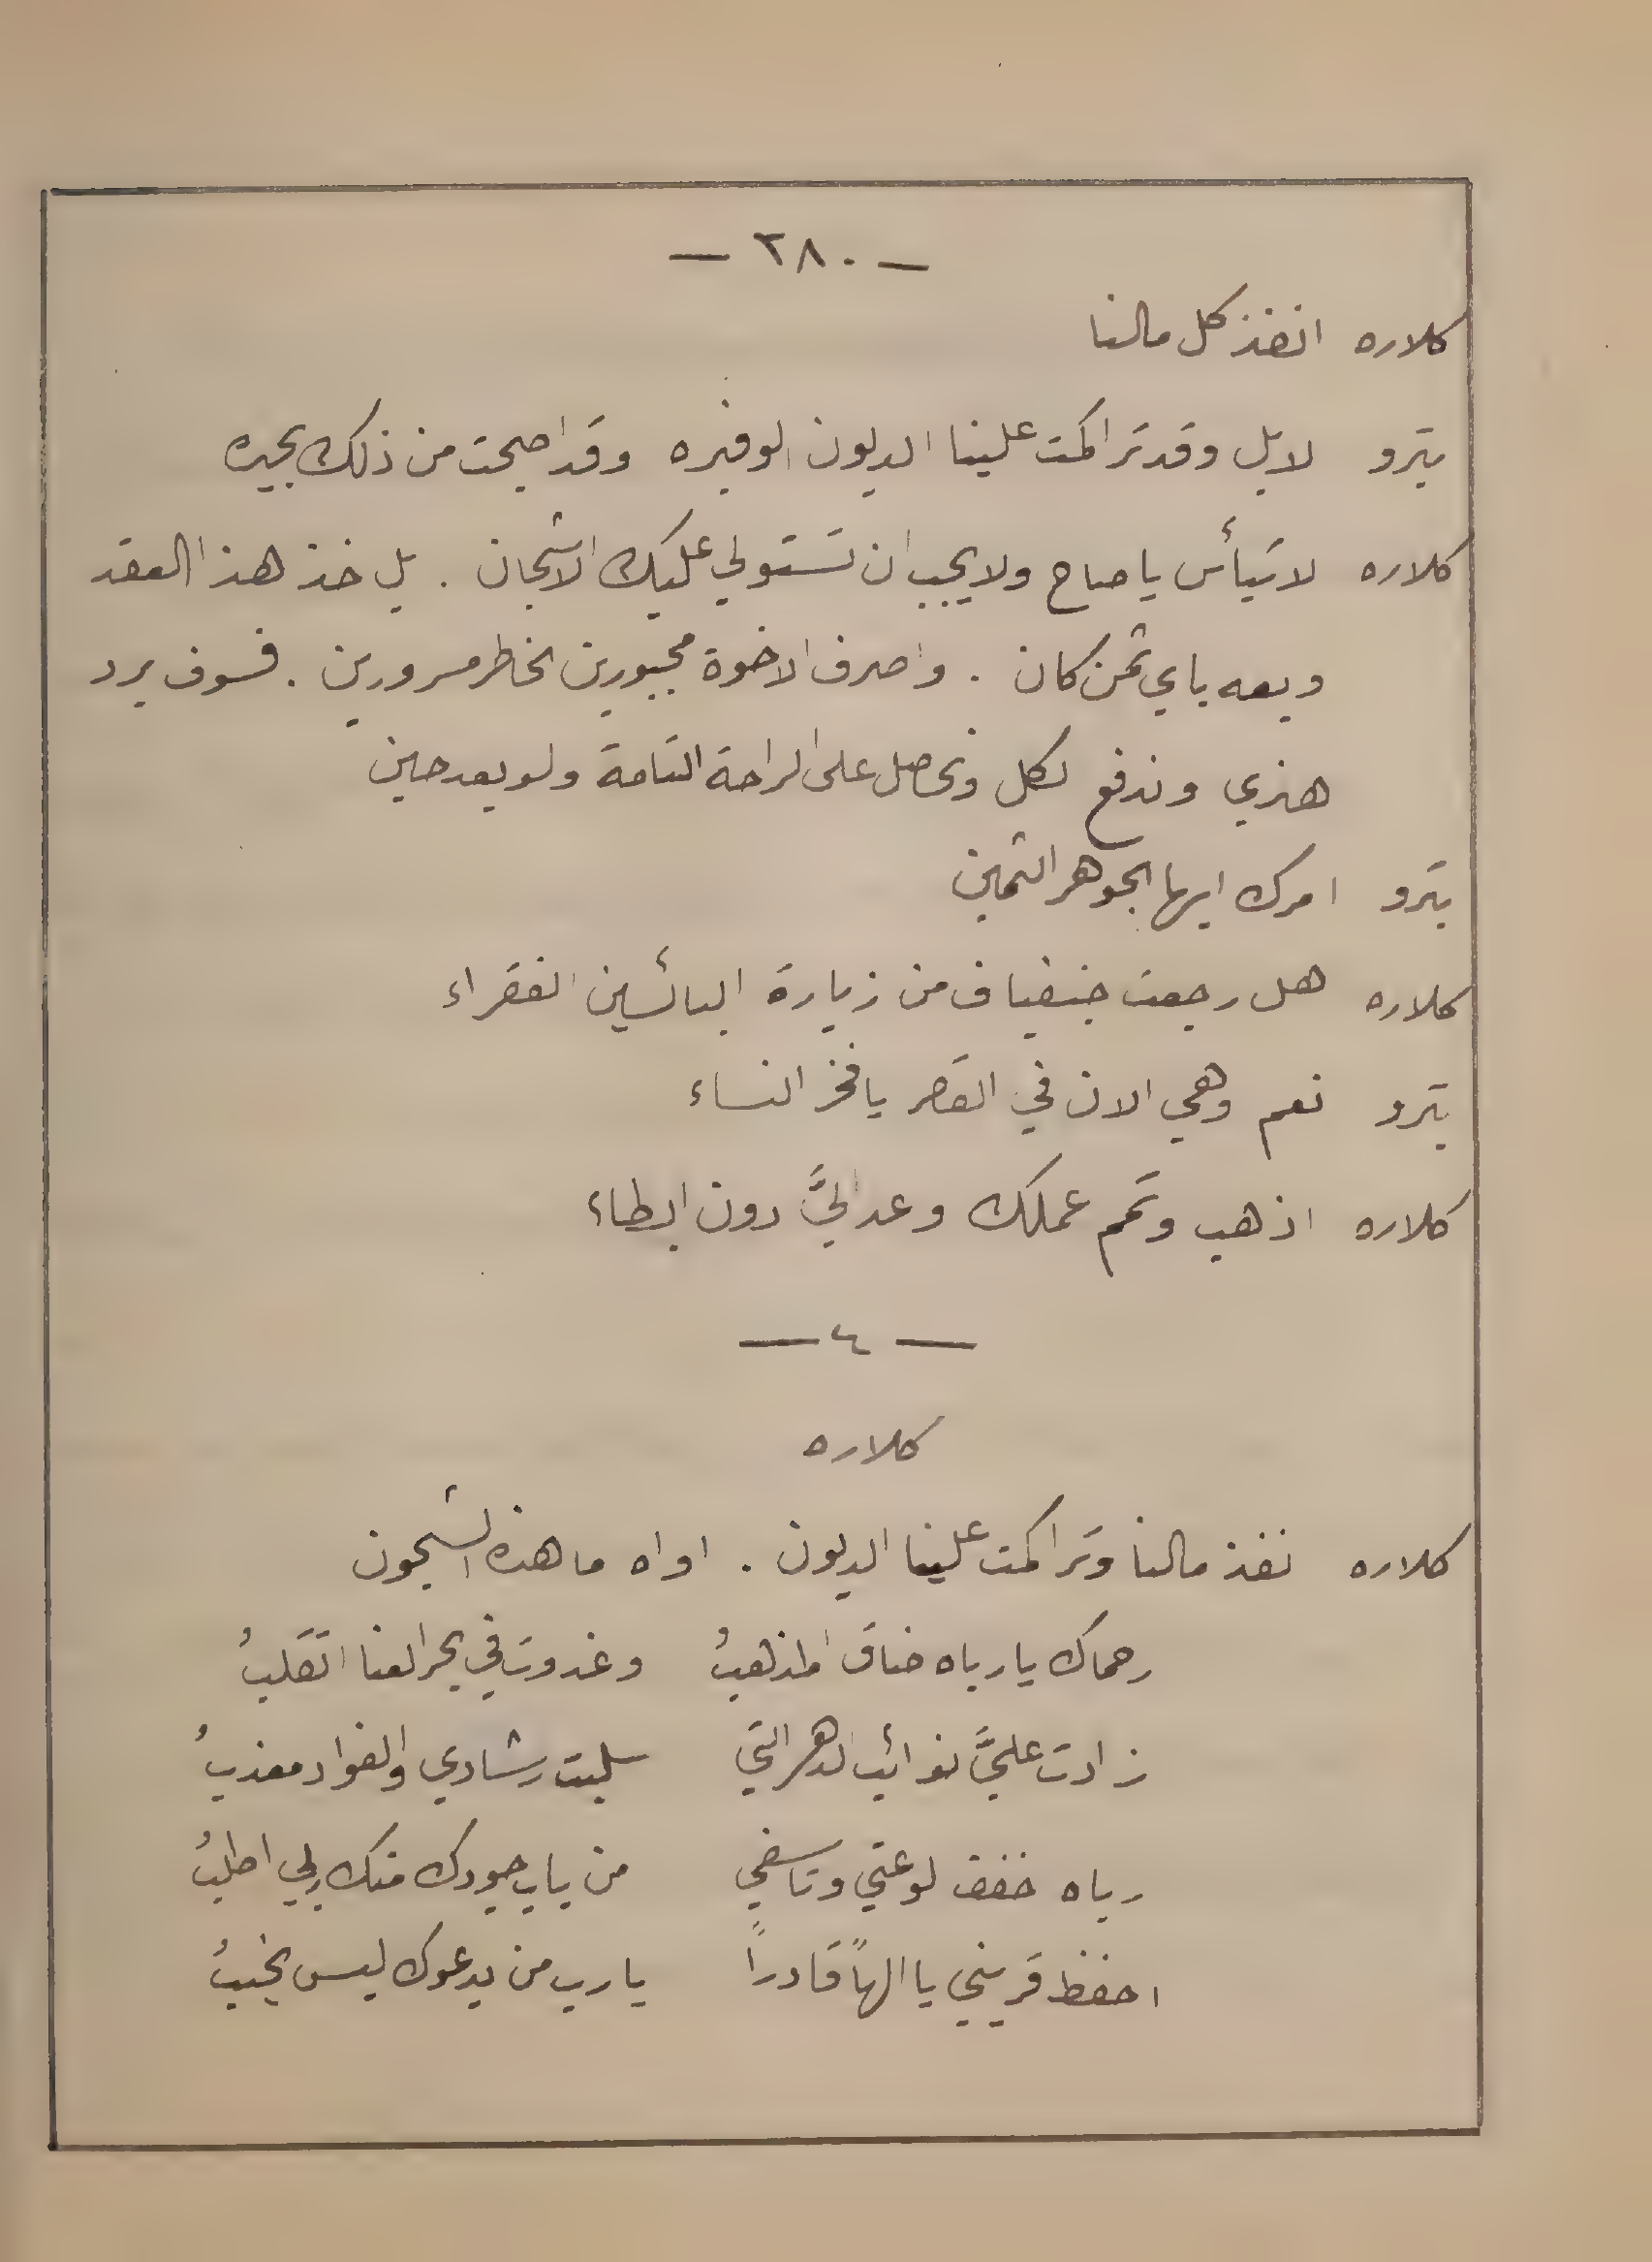 — ٢٨٠ —
كلاره انفذ كل مالنا
بترو لا بل وقد تراكمت علينا الديون الوفيره وقد اصبحت من ذلك بحيره
كلاره لا تيأس يا صاح ولا يجب ان تستولي عليك الاشجان . بل خذ هذا العقد
وبعه باي ثمن كان . واصرف الاخوة مجبورين الخاطر مسرورين . فسوف يرد
هنري وندفع لكل ونحصل على الراحة التامة ولو بعد حين
بترو امرك ايها الجوهر الثمين
كلاره هل رجعت جنفياف من زيارة البائسين الفقراء
بترو نعم وهي الان في القصر يا فخر النساء
كلاره اذهب وتمم عملك وعد اليَّ دون ابطاء
— ٤ —
كلاره
كلاره نفذ مالنا وتراكمت علينا الديون . اواه ما هذه الشجون
رحماك يا رباه ضاق المذهبُ وغدوت في بحر العنا اتقلبُ
زادت عليَّ نوائب الدهر التي سلبت رشادي والفواد معذبُ
رباه خفف لوعتي وتاسفي من باب جودك منك ربي اطلبُ
احفظ قريني يا الهاً قادراً يا رب من يدعوك ليس يخيبُ